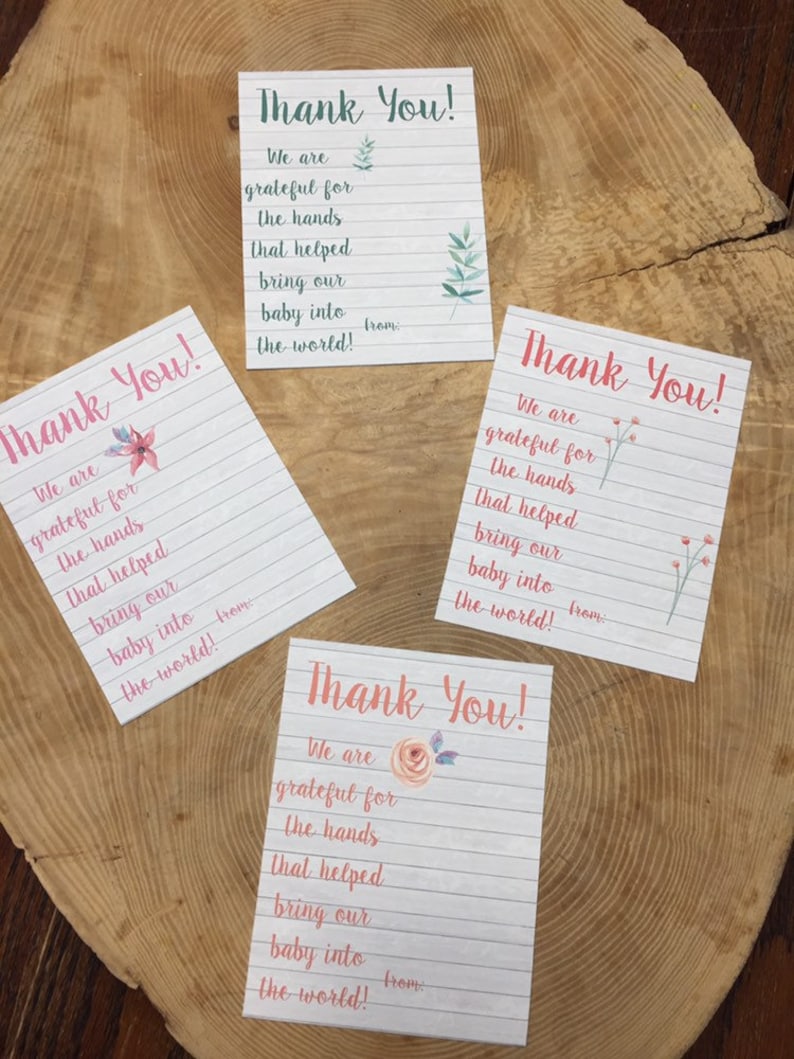 Thank You!
We are
grateful for
the hands
that helped
bring our
baby into
the world!
from:
Thank You!
We are
grateful for
the hands
that helped
bring our
baby into
the world!
from:
Thank You!
We are
grateful for
the hands
that helped
bring our
baby into
the world!
from:
Thank You!
We are
grateful for
the hands
that helped
bring our
baby into
the world!
from: